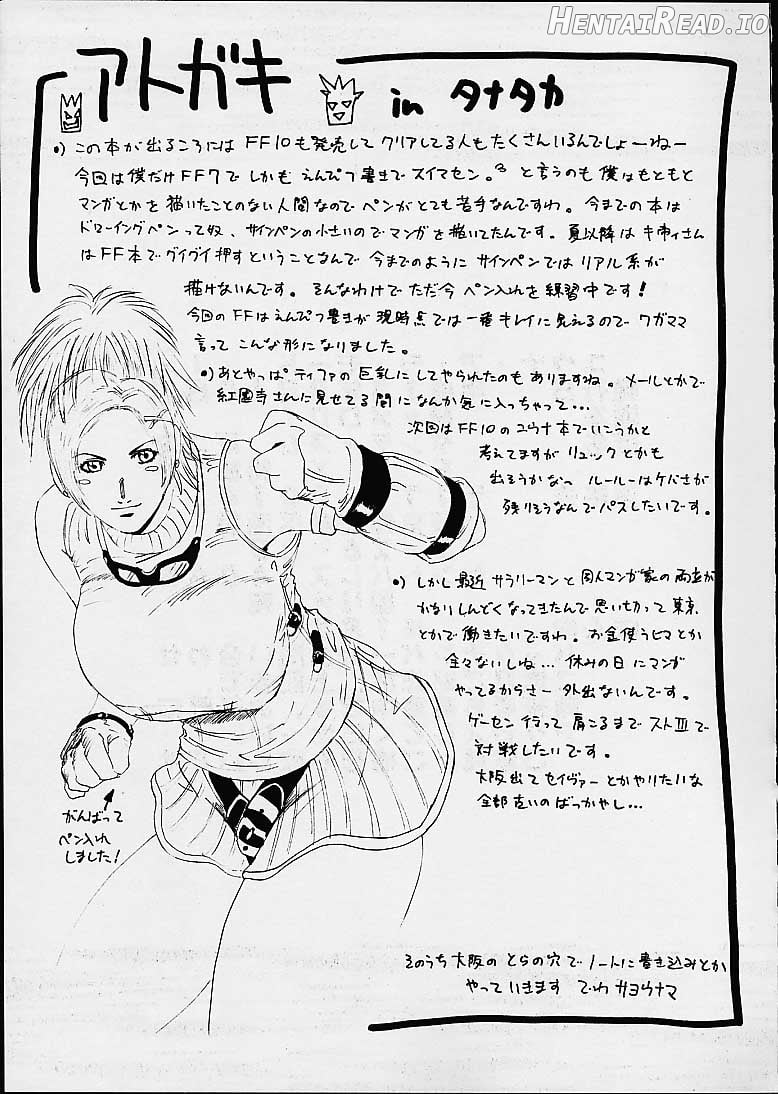 HENTAIREAD.IO
アトガキ
in タナタカ
•) この本が出るころには FF10も発売して クリアしてる人もたくさんいるんでしょーねー
今回は僕だけFF7で しかも えんぴつ書きで スイマセン。 と言うのも 僕は もともと
マンガとかを 描いたことのない人間なので ペンが とても 苦手なんですわ。 今までの本は
ドローイングペンって奴、サインペンの小さいので マンガを 描いてたんです。 夏以降は さん
はFF本で グイグイ 押すということなんで 今までのように サインペンでは リアル系が
描けないんです。 そんなわけで ただ今 ペン入れを 練習中です!
今回のFFは えんぴつ書きが 現時点では 一番 キレイに 見えるので ワガママ
言って こんな形に なりました。
•) あとやっぱ ティファの 巨乳に してやられたのも ありますね。 メールとかで
さんに 見せてる 間に なんか 気に 入っちゃって...
次回は FF10の ユウナ本で いこうかと
考えてますが リュック とかも
出そうかなっ ルールーは ケバさが
残りそうなんで パスしたいです。
•) しかし 最近 サラリーマンと 同人マンガ家の 両立が
かなり しんどく なってきたんで 思い切って 東京
とかで 働きたいですわ。 お金使う ヒマとか
全々ないしね... 休みの 日に マンガ
やってるからさー 外出ないんです。
ゲーセン 行って 肩こるまで ストⅢで
対戦したいです。
大阪出て セイヴァー とかやりたいな
全部 古いの ばっかやし...
がんばって
ペン入れ
しました!
そのうち 大阪の とらの穴で ノートに 書き込みとか
やって いきます でわ サヨウナマ